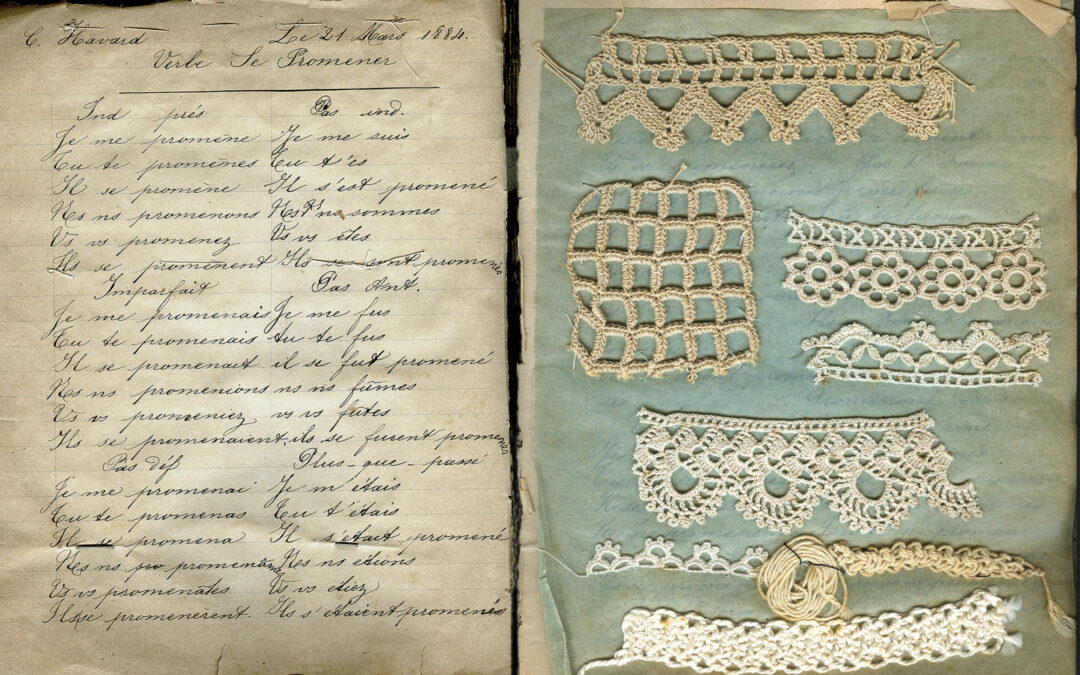 C. Havard Le 21 Mars 1884.
Verbe Se Promener
Ind prés Pas ind.
Je me promène Je me suis
Tu te promènes Tu t'es
Il se promène Il s'est promené
Ns ns promenons Ns ns sommes
Vs vs promenez Vs vs êtes
Ils se promènent Ils se sont promenés
Imparfait Pas Ant.
Je me promenais Je me fus
Tu te promenais tu te fus
Il se promenait il se fut promené
Ns ns promenions ns ns fûmes
Vs vs promeniez vs vs futes
Ils se promenaient ils se furent promenés
Pas déf Plus-que-passé
Je me promenai Je m'étais
Tu te promenas Tu t'étais
Il se promena Il s'était promené
Ns ns promenâmes Ns ns étions
Vs vs promenates Vs vs etiez
Ils se promenèrent. Ils s'étaient promenés